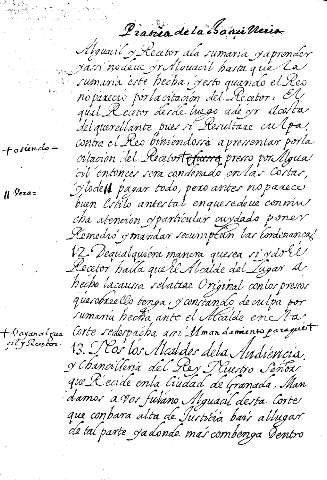 Pratica de la Chanzilleria
Alguacil y Recetor ala sumaria y aprender
y assi no deve yr Alguacil hasta que la
sumaria este hecha, y esto quando el Reo
no parecio por la citacion del Recetor; El
qual Recetor desde luego a de yr a Costa
del querellante pues si Resultare culpa
contra el Reo biniendose a presentar por la
+ siendo
citacion del Recetor + preso por Algua
cil entonces sera condenado en las Costas,
y lo de pagar todo, pero antes no parece
buen Estilo antes tal en que se deve con mu
cha atencion y particular cuydado poner
Remedio y mandar se cumplan las hordenanças
12. De qualquiera manera que sea si ydo el
Recetor halla que el Alcalde del Lugar a
hecho la causa se la trae Original con los presos
que sobre ello tenga, y constando de culpa por
sumaria hecha ante el Alcalde en esta
+ Vayan alguacil y Recetor
Corte se despacha assi. Un mandamiento para que +
13. Nos los Alcaldes de la Audiencia,
y Chancilleria del Rey Nuestro Señor
que Reside en la ciudad de Granada, Man
damos a vos fulano Alguacil desta Corte
que con bara alta de Justicia bais al lugar
de tal parte y a donde mas conbenga dentro